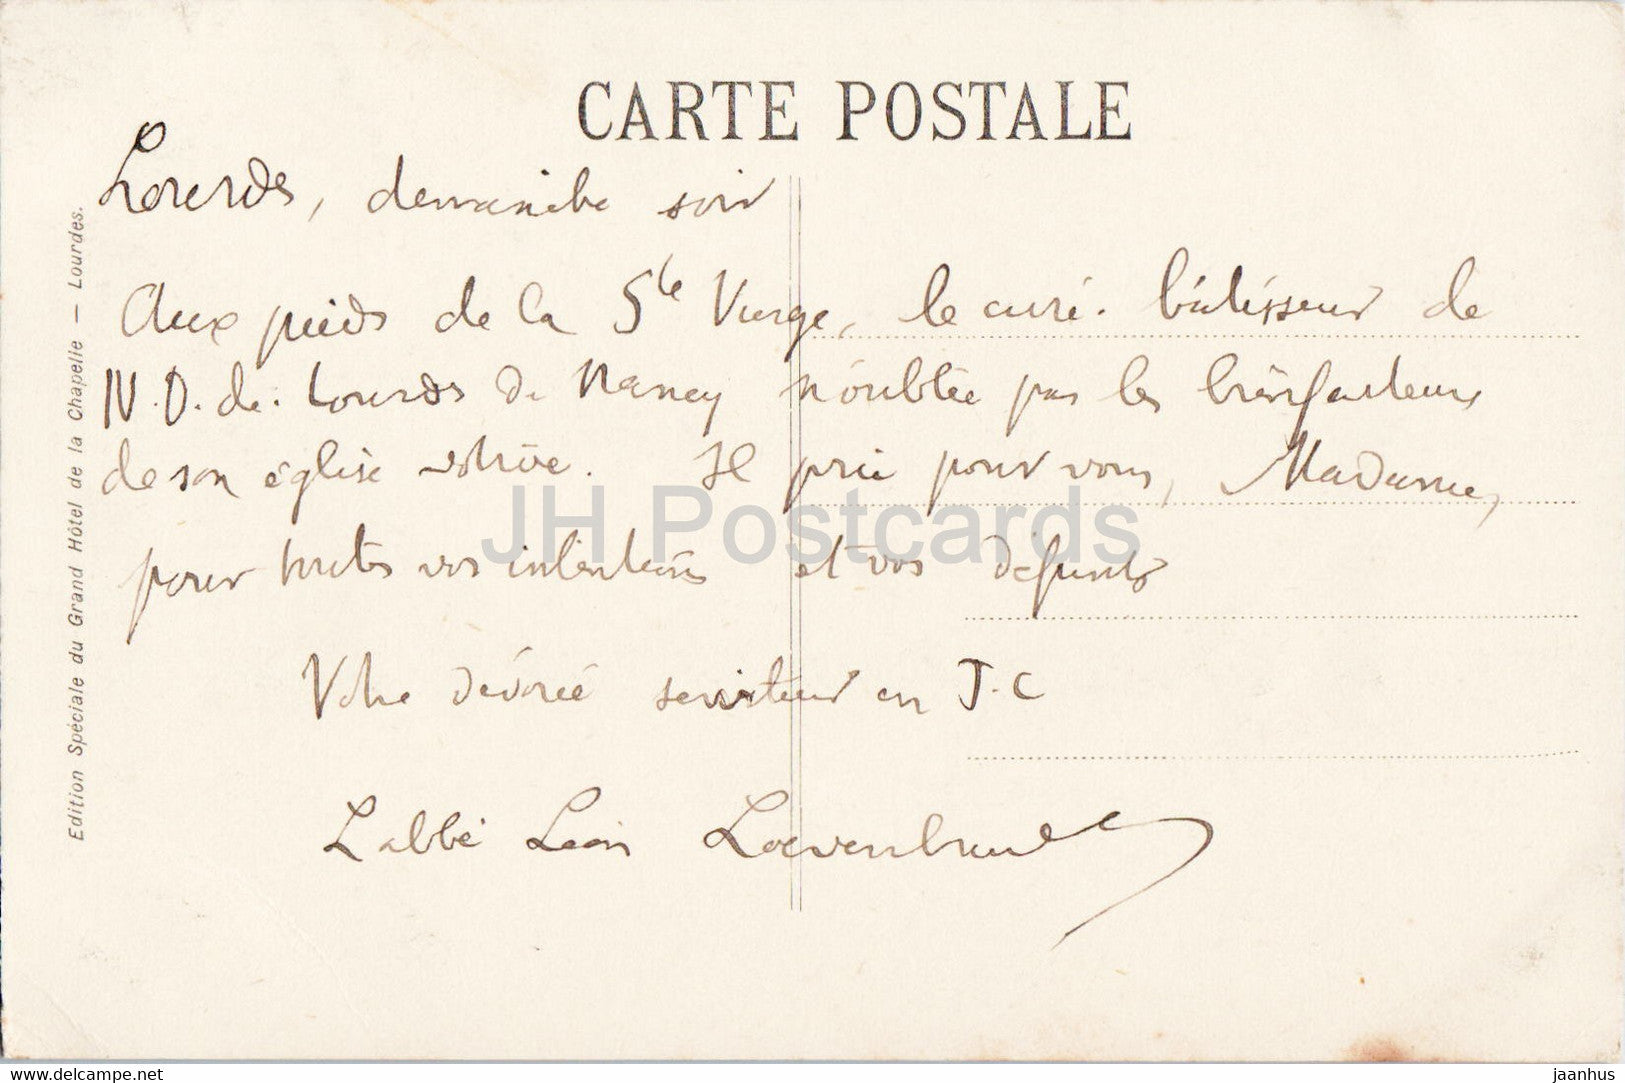 CARTE POSTALE
Lourdes, dimanche soir
Aux pieds de la Ste Vierge, le curé bâtisseur de
N. D. de Lourdes de Nancy n'oublie pas les bienfaiteurs
de son église votive. Il prie pour vous, Madame,
pour toutes vos intentions et vos défunts
Votre dévoué serviteur en J. C
L'abbé Léon Loevenbruck
Edition Spéciale du Grand Hôtel de la Chapelle — Lourdes.
JH Postcards
www.delcampe.net
jaanhus